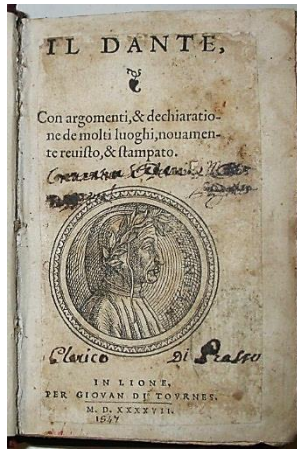 IL DANTE,
Con argomenti, & dechiaratio-
ne de molti luoghi, nouamen-
te reuisto, & stampato.
Clerico Di Prasso
IN LIONE,
PER GIOVAN DI TOVRNES.
M. D. XXXXVII.
1547